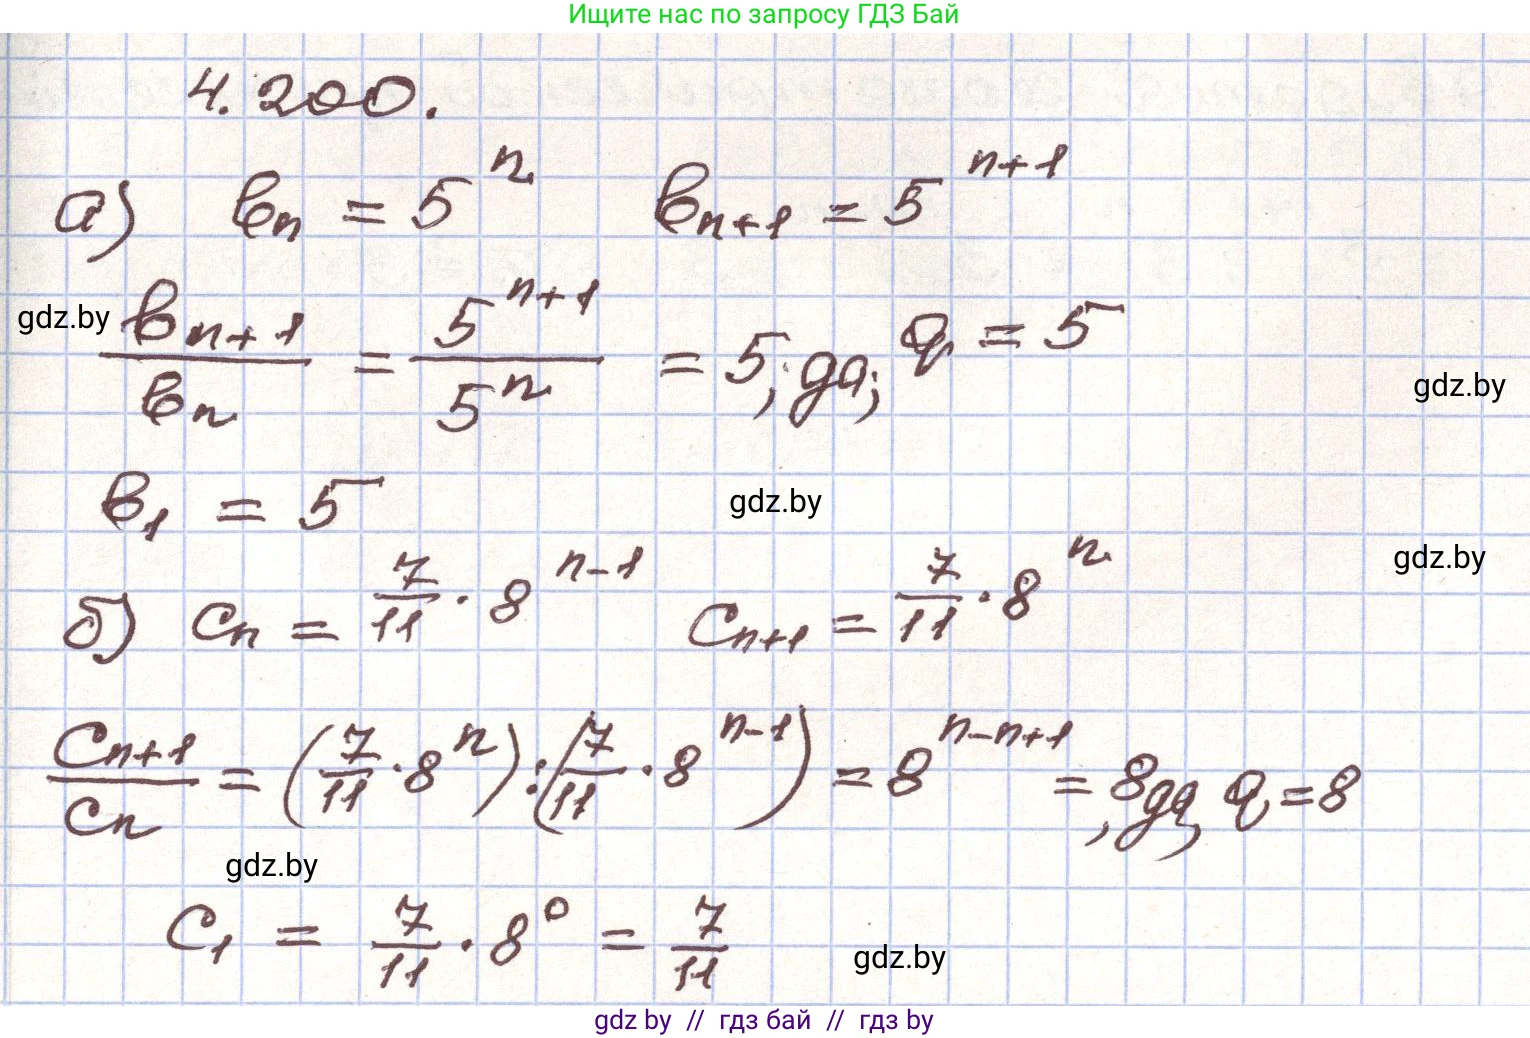 Ищите нас по запросу ГДЗ Бай
4.200.
а) bₙ = 5ⁿ bₙ₊₁ = 5ⁿ⁺¹
gdz.by
bₙ₊₁/bₙ = 5ⁿ⁺¹/5ⁿ = 5, да; q = 5
gdz.by
b₁ = 5
gdz.by
gdz.by
б) cₙ = 7/11 · 8ⁿ⁻¹ cₙ₊₁ = 7/11 · 8ⁿ
cₙ₊₁/cₙ = (7/11 · 8ⁿ) : (7/11 · 8ⁿ⁻¹) = 8ⁿ⁻ⁿ⁺¹ = 8, да, q = 8
gdz.by
c₁ = 7/11 · 8⁰ = 7/11
gdz.by
gdz by // гдз бай // гдз by